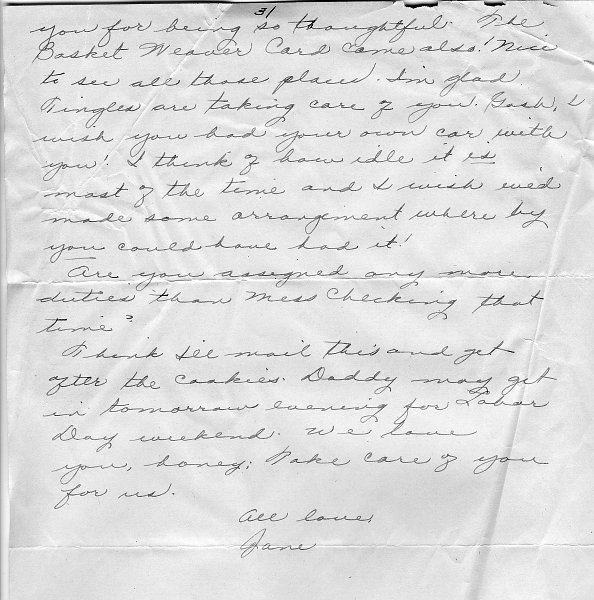 3/
you for being so thoughtful. The
Basket Weaver Card came also! Nice
to see all those places. I'm glad
Tingles are taking care of you. Gosh, I
wish you had your own car with
you! I think of how idle it is
most of the time and I wish we'd
made some arrangement where by
you could have had it!
Are you assigned any more
duties than Mess Checking that
time?
Think I'll mail this and get
after the cookies. Daddy may get
in tomorrow evening for Labor
Day weekend. We love
you, honey; Take care of you
for us.
All love,
Jane